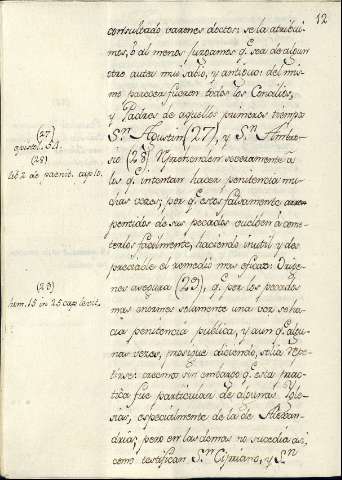 12
consultado varones doctos: se la atribui-
mos, ò al menos juzgamos q.e sea de algun
otro autor mui sabio, y antiguo: del mis-
mo parecer fueron todos los Concilios,
y Padres de aquellos primeros tiempos
S.n Agustin (27), y S.n Ambro-
sio (28) reprenden severamente à
los q.e intentan hacer penitencia mu-
chas veces; por q.e estos falsamente arre-
pentidos de sus pecados vuelben à come-
terlos facilmente, haciendo inutil y des-
preciable el remedio mas eficaz. Orige-
nes asegura (29), q.e por los pecados
mas enormes solamente una vez se ha-
cia penitencia publica, y aun q.e algu-
nas veces, prosigue diciendo, solia repe-
tirse: creemos sin embargo q.e esta prac-
tica fue particular de algunas Igle-
sias, especialmente de la de Alexan-
dria; pero en las demas no sucedia asi;
como testifican S.n Cipriano, y S.n
(27)
epist. 54.
(28)
lib. 2 de paenit. cap. 10.
(29)
hom. 15 in 25 cap. levit.